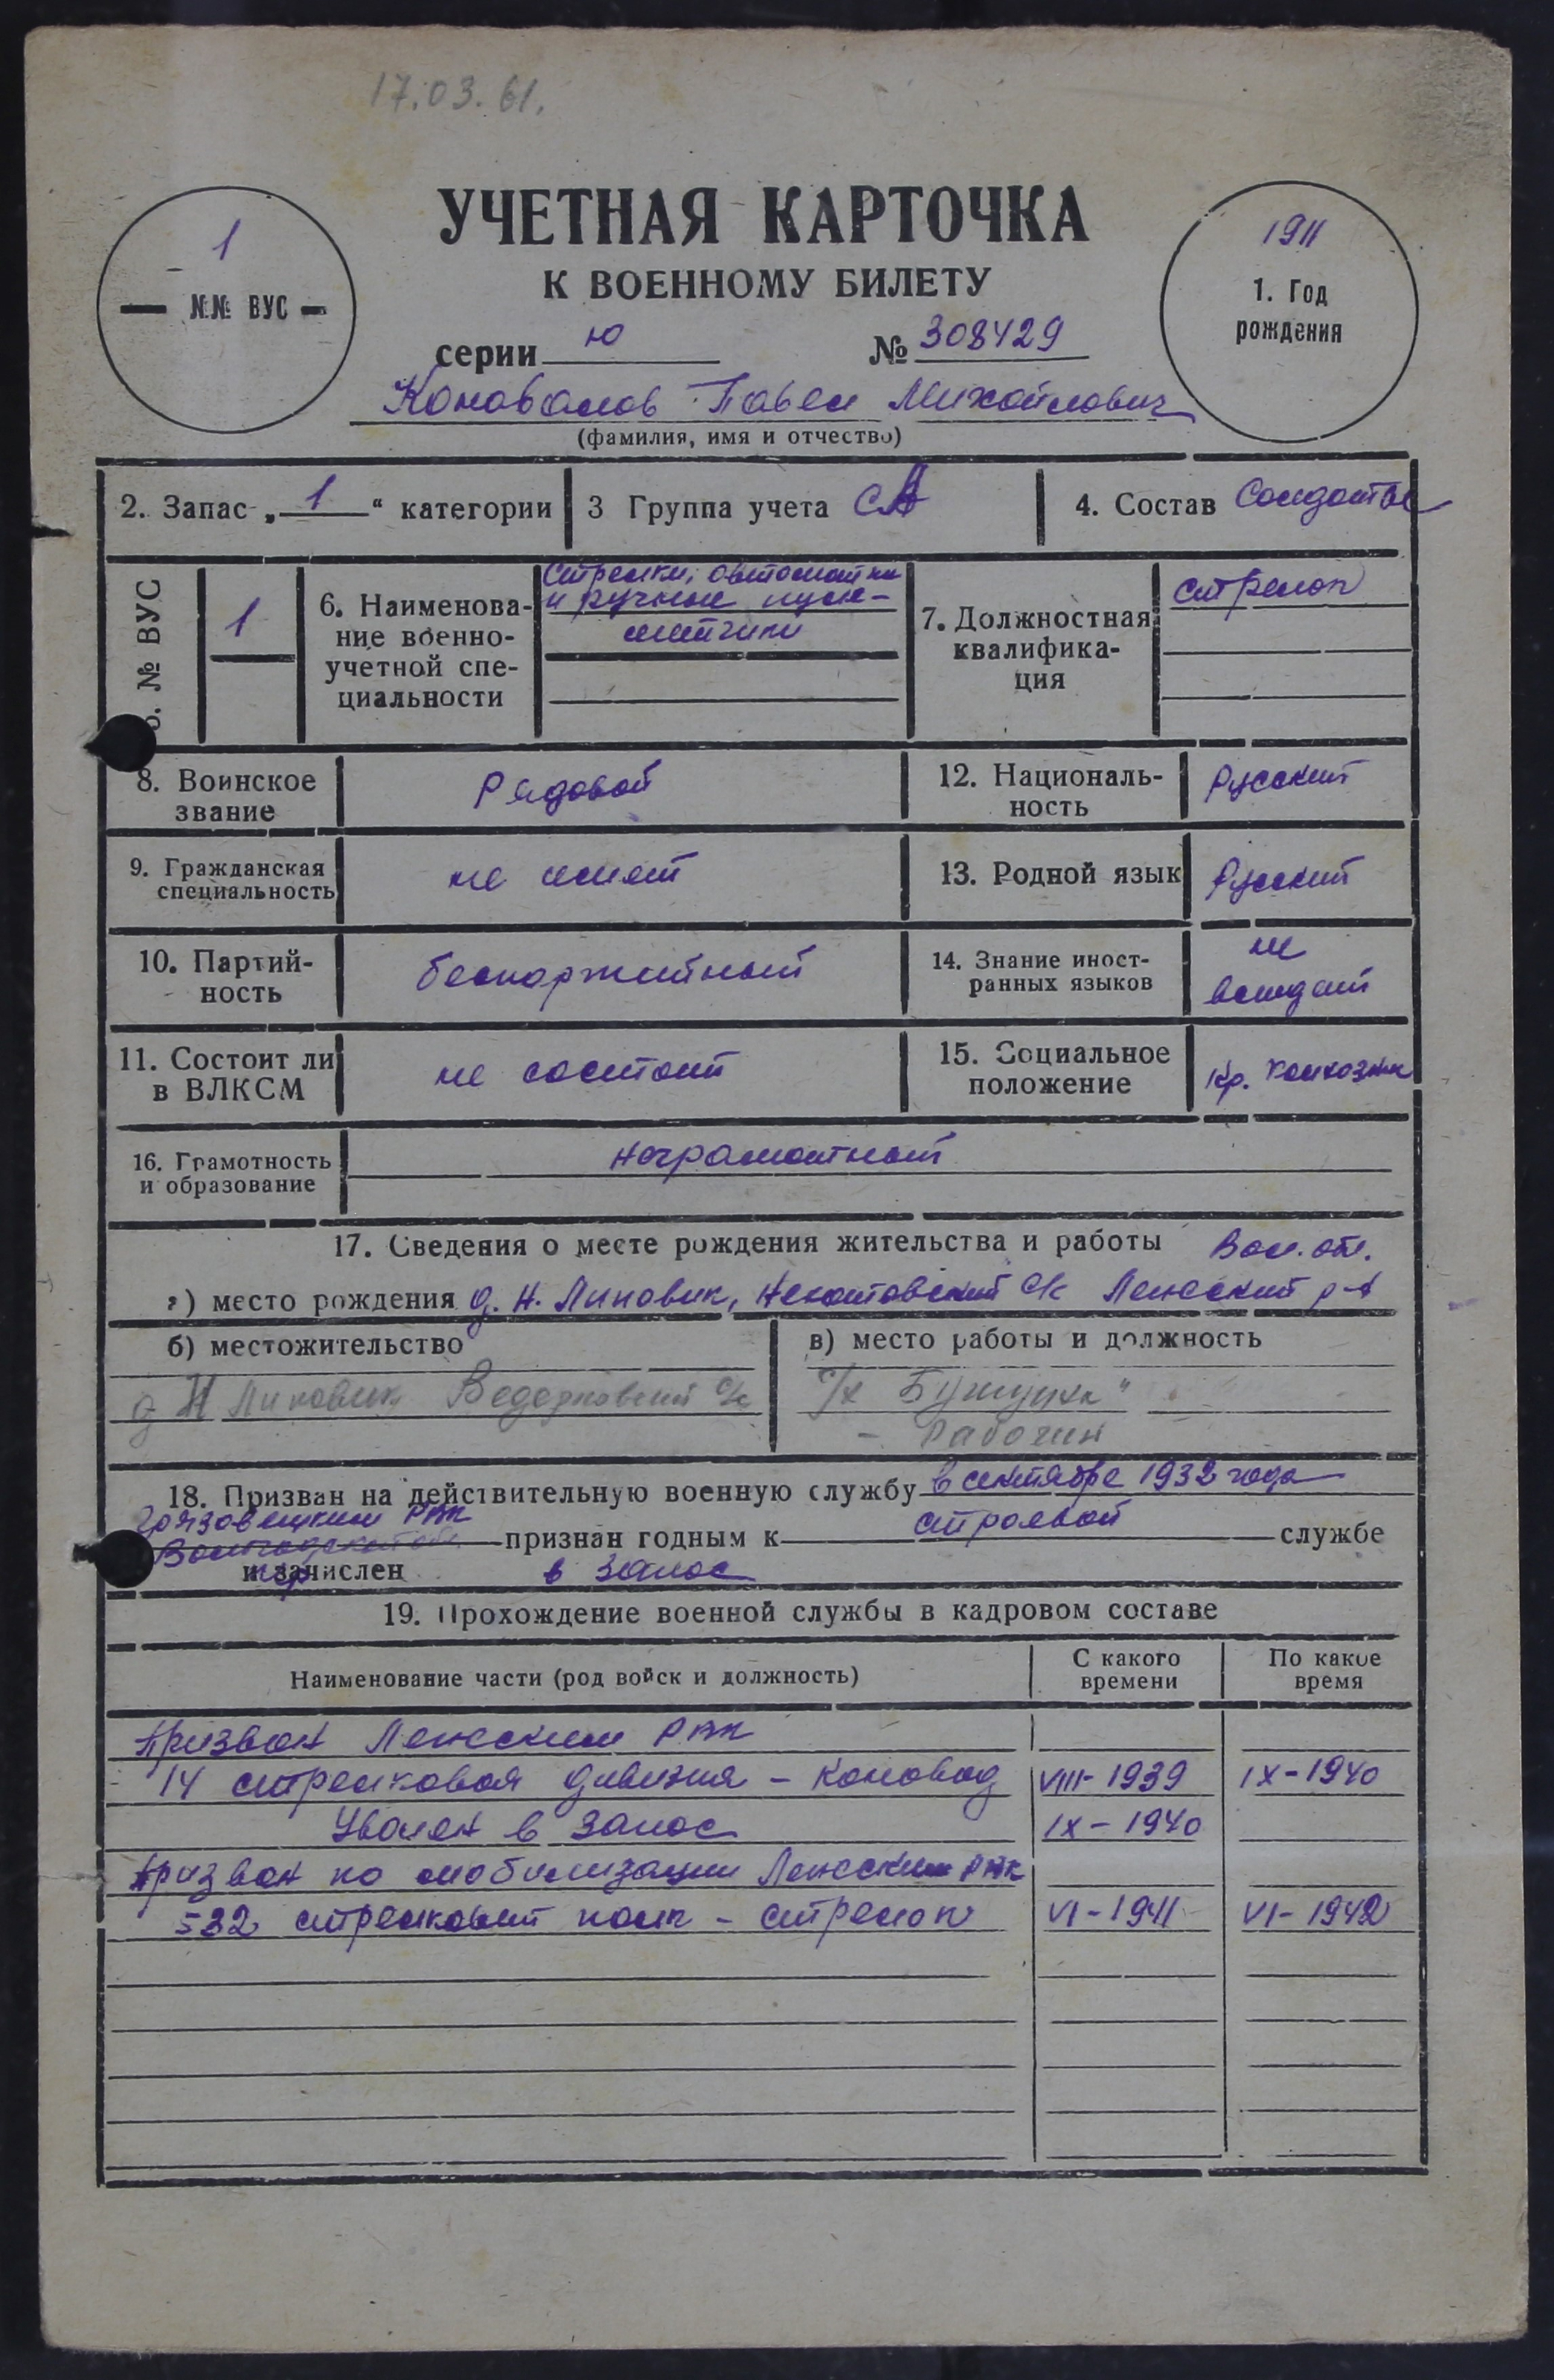 17.03.61.
УЧЕТНАЯ КАРТОЧКА
К ВОЕННОМУ БИЛЕТУ
1
— №№ ВУС —
1911
1. Год
рождения
серии Ю № 308429
Коновалов Павел Михайлович
(фамилия, имя и отчество)
2. Запас „1“ категории
3 Группа учета СА
4. Состав Солдаты
№ ВУС
1
6. Наименова-
ние военно-
учетной спе-
циальности
Стрелки, автоматчики
и ручные пуле-
метчики
7. Должностная
квалифика-
ция
стрелок
8. Воинское
звание
Рядовой
12. Националь-
ность
Русский
9. Гражданская
специальность
не имеет
13. Родной язык
Русский
10. Партий-
ность
беспартийный
14. Знание иност-
ранных языков
не
владеет
11. Состоит ли
в ВЛКСМ
не состоит
15. Социальное
положение
кр. колхозник
16. Грамотность
и образование
неграмотный
17. Сведения о месте рождения жительства и работы Вол. обл.
а) место рождения д. Н. Липовик, с/с Лежский р-н
б) местожительство
д Н Липовик, с/с
в) место работы и должность
с/х
- Рабочий
18. Призван на действительную военную службу в сентябре 1932 года
Грязовецким РВК
признан годным к строевой службе
и зачислен в запас
19. Прохождение военной службы в кадровом составе
Наименование части (род войск и должность)
С какого
времени
По какое
время
Призван Лежским РВК
14 стрелковая дивизия - коновод VIII-1939 IX-1940
Уволен в запас IX-1940
Призван по мобилизации Лежским РВК
532 стрелковый полк - стрелок VI-1941 VI-1942